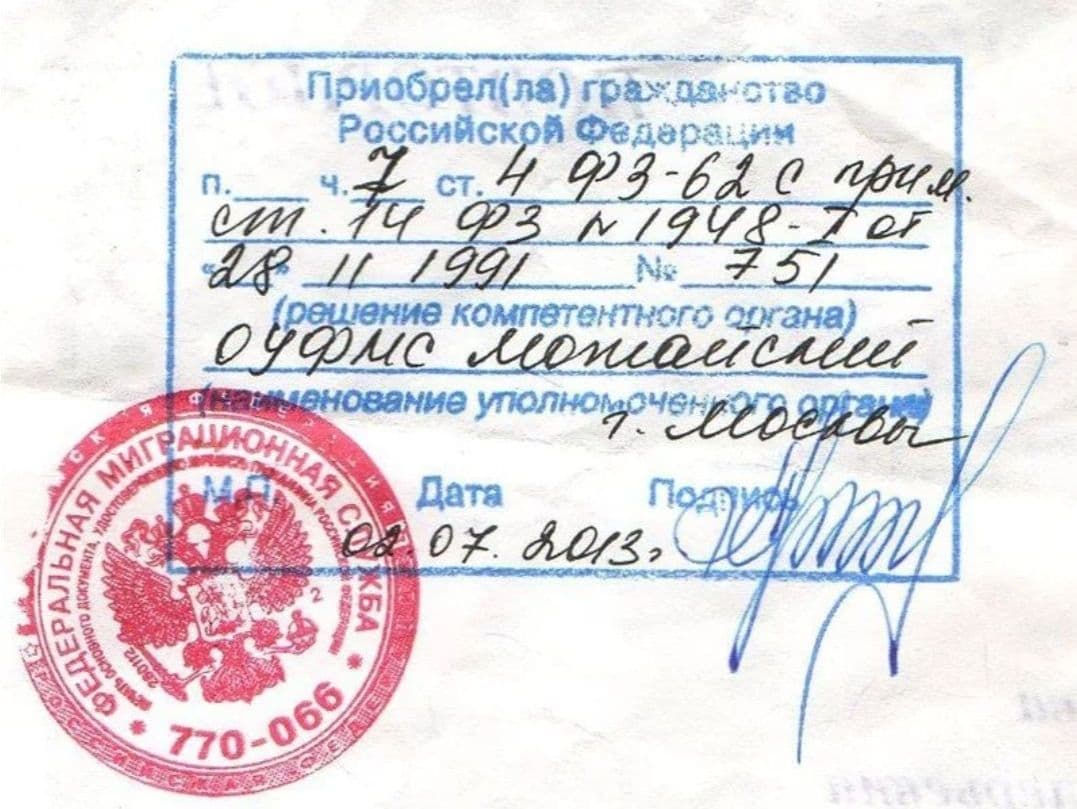 Приобрел(ла) гражданство
Российской Федерации
п.____ ч. 7 ст. 4 ФЗ-62 с прим.
ст. 14 ФЗ № 1948-I от
"28" 11 1991 № 751
(решение компетентного органа)
ОУФМС Можайский
(наименование уполномоченного органа)
г. Москвы
М.П. Дата Подпись
02.07.2013г
ФЕДЕРАЛЬНАЯ МИГРАЦИОННАЯ СЛУЖБА
* 770-066 *
2